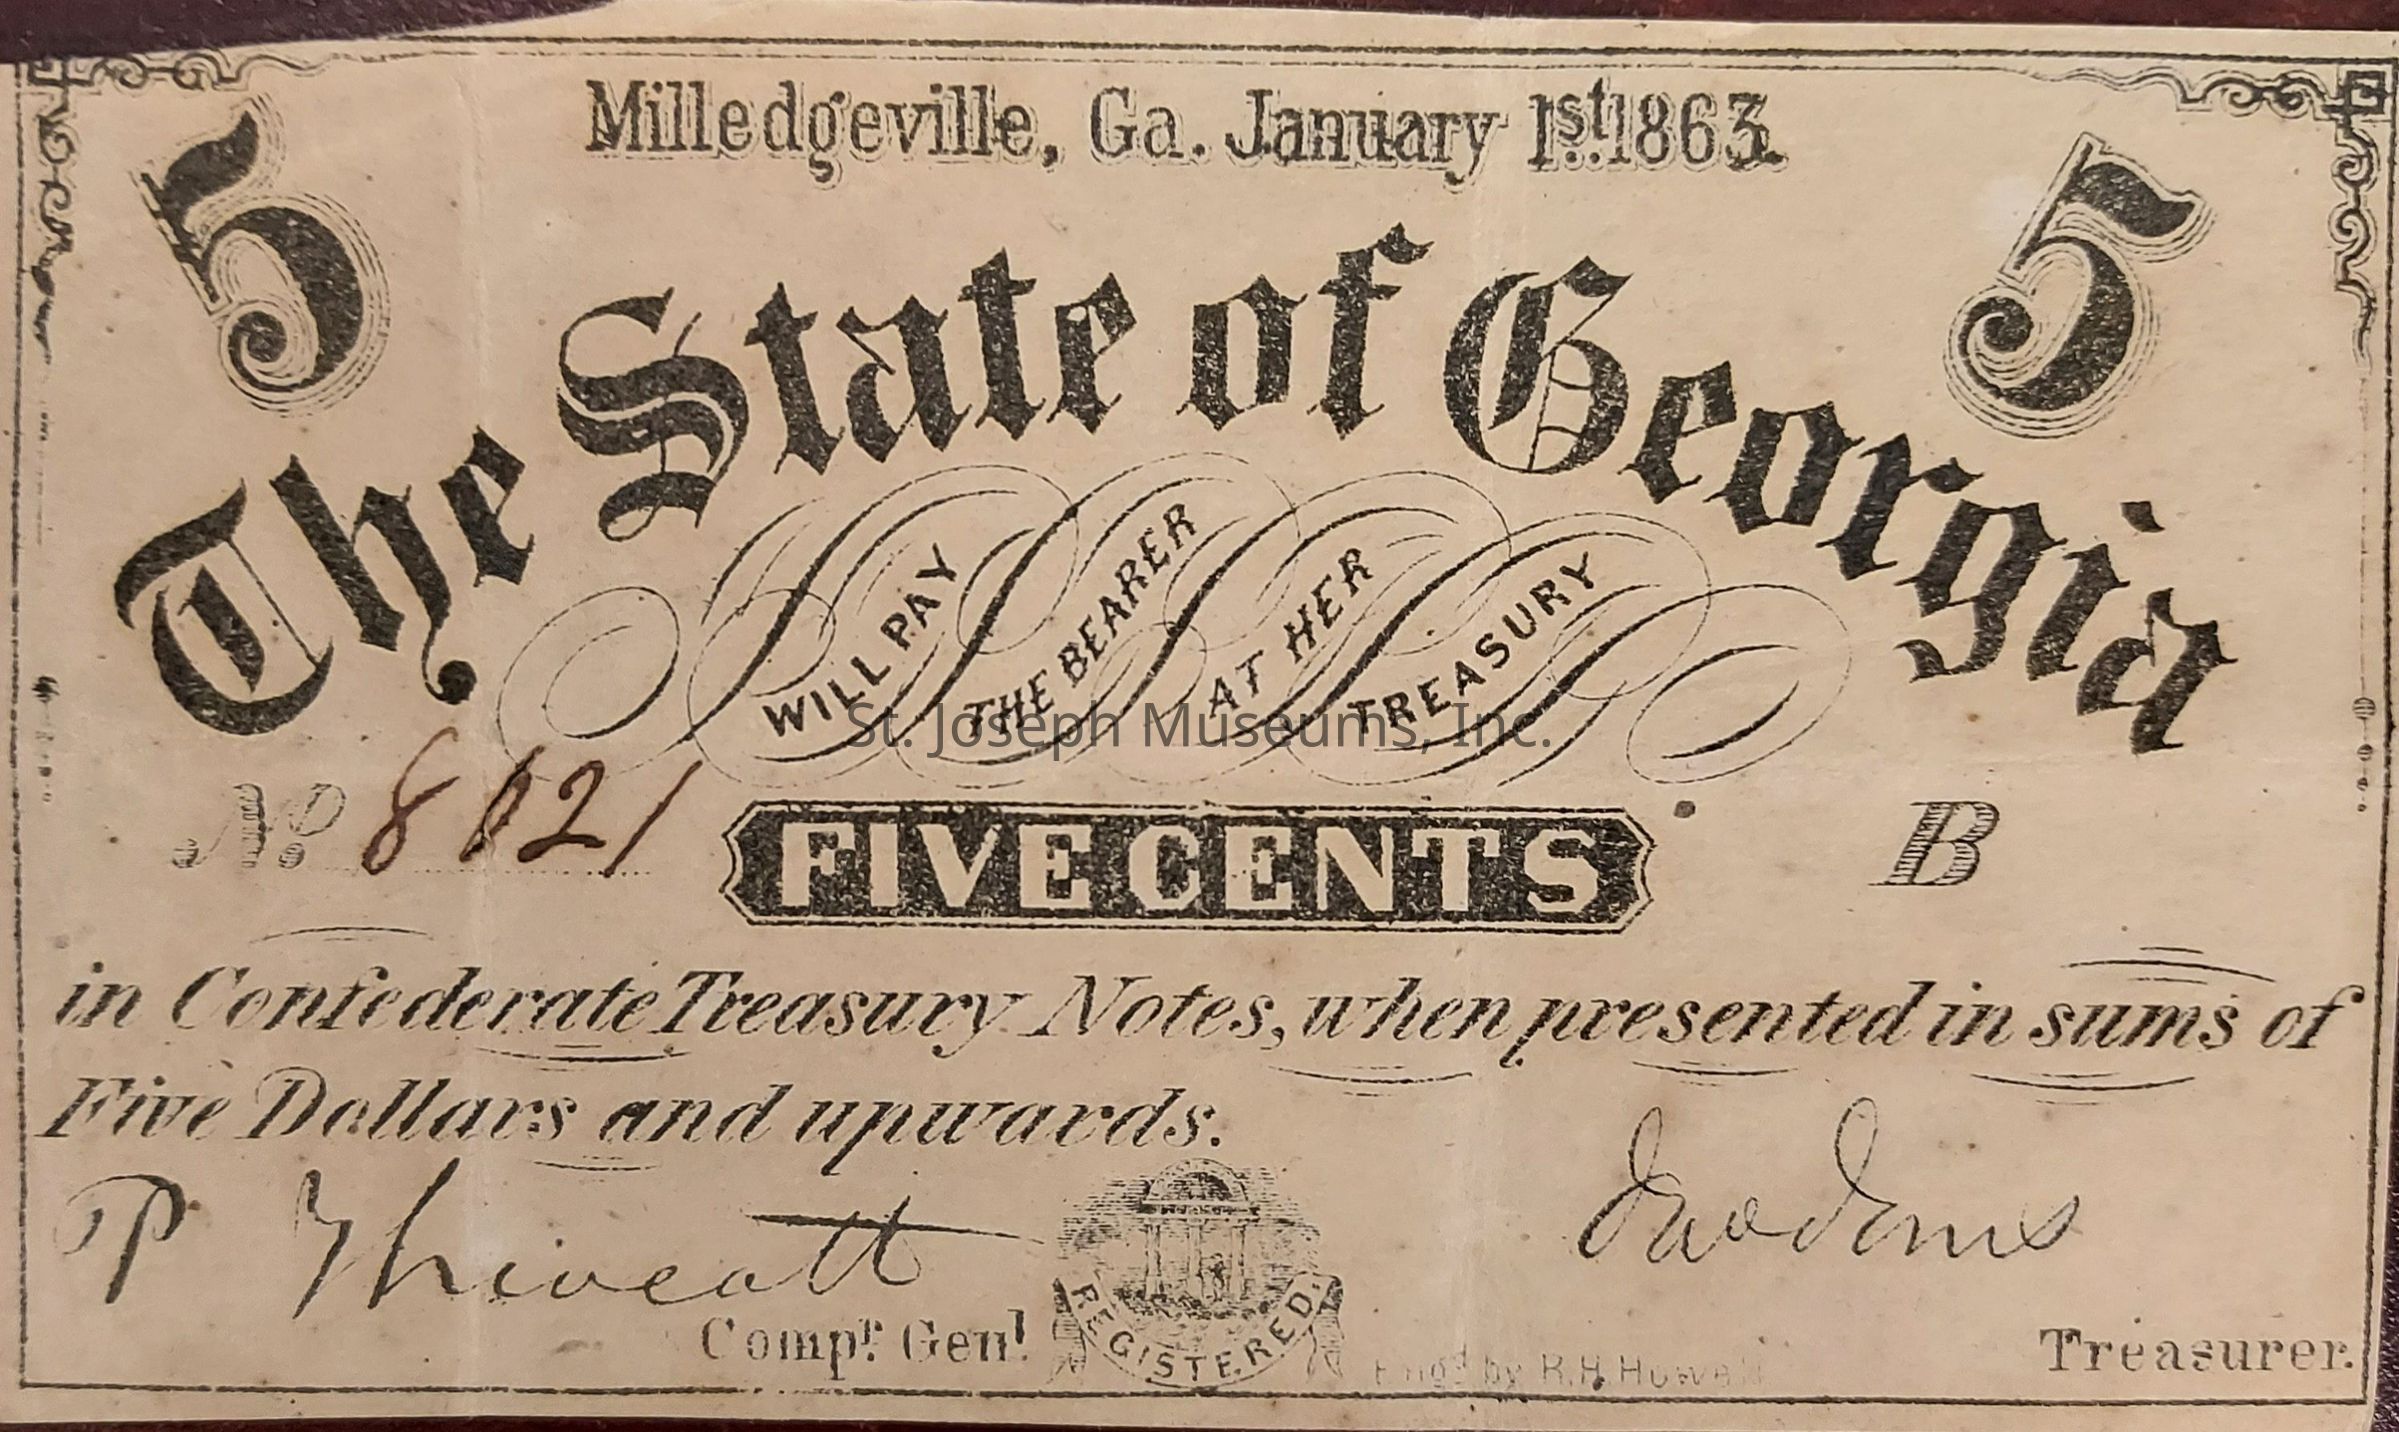 Milledgeville, Ga. January 1st. 1863.
5 5
The State of Georgia
WILL PAY
THE BEARER
AT HER
TREASURY
St. Joseph Museums, Inc.
No 8121
FIVE CENTS
B
in Confederate Treasury Notes, when presented in sums of
Five Dollars and upwards.
P Thweatt
Compr. Genl.
REGISTERED.
Engd by R.H. Howell
Treasurer.